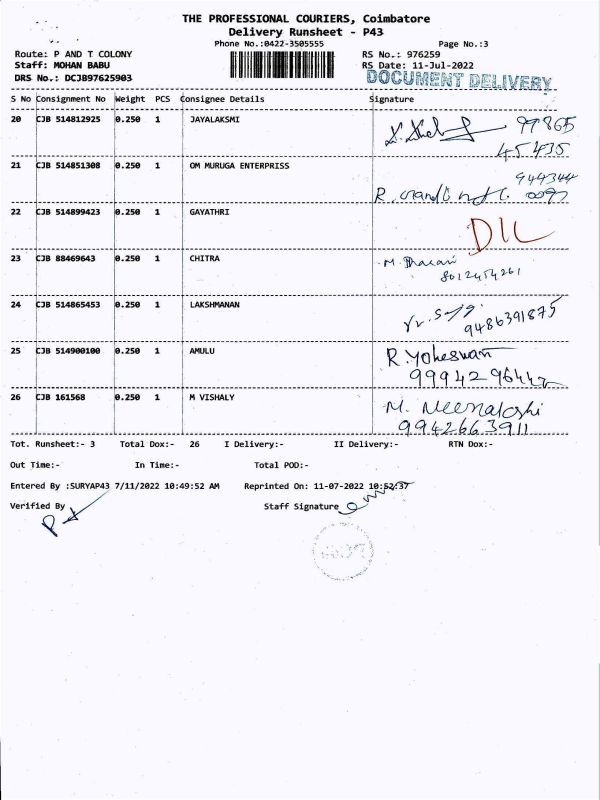 THE PROFESSIONAL COURIERS, Coimbatore
Delivery Runsheet - P43
Phone No.:0422-3505555 Page No.:3
Route: P AND T COLONY RS No.: 976259
Staff: MOHAN BABU RS Date: 11-Jul-2022
DRS No.: DCJB97625903 DOCUMENT DELIVERY
S No Consignment No Weight PCS Consignee Details Signature
20 CJB 514812925 0.250 1 JAYALAKSMI 97865
45435
21 CJB 514851308 0.250 1 OM MURUGA ENTERPRISS 949344
R.
22 CJB 514899423 0.250 1 GAYATHRI D/L
23 CJB 88469643 0.250 1 CHITRA M.
8012454261
24 CJB 514865453 0.250 1 LAKSHMANAN
9486391875
25 CJB 514900100 0.250 1 AMULU R.Yokeswari
26 CJB 161568 0.250 1 M VISHALY M. Meenatoshi
9942663911
Tot. Runsheet:- 3 Total Dox:- 26 I Delivery:- II Delivery:- RTN Dox:-
Out Time:- In Time:- Total POD:-
Entered By :SURYAP43 7/11/2022 10:49:52 AM Reprinted On: 11-07-2022 10:52:37
Verified By Staff Signature